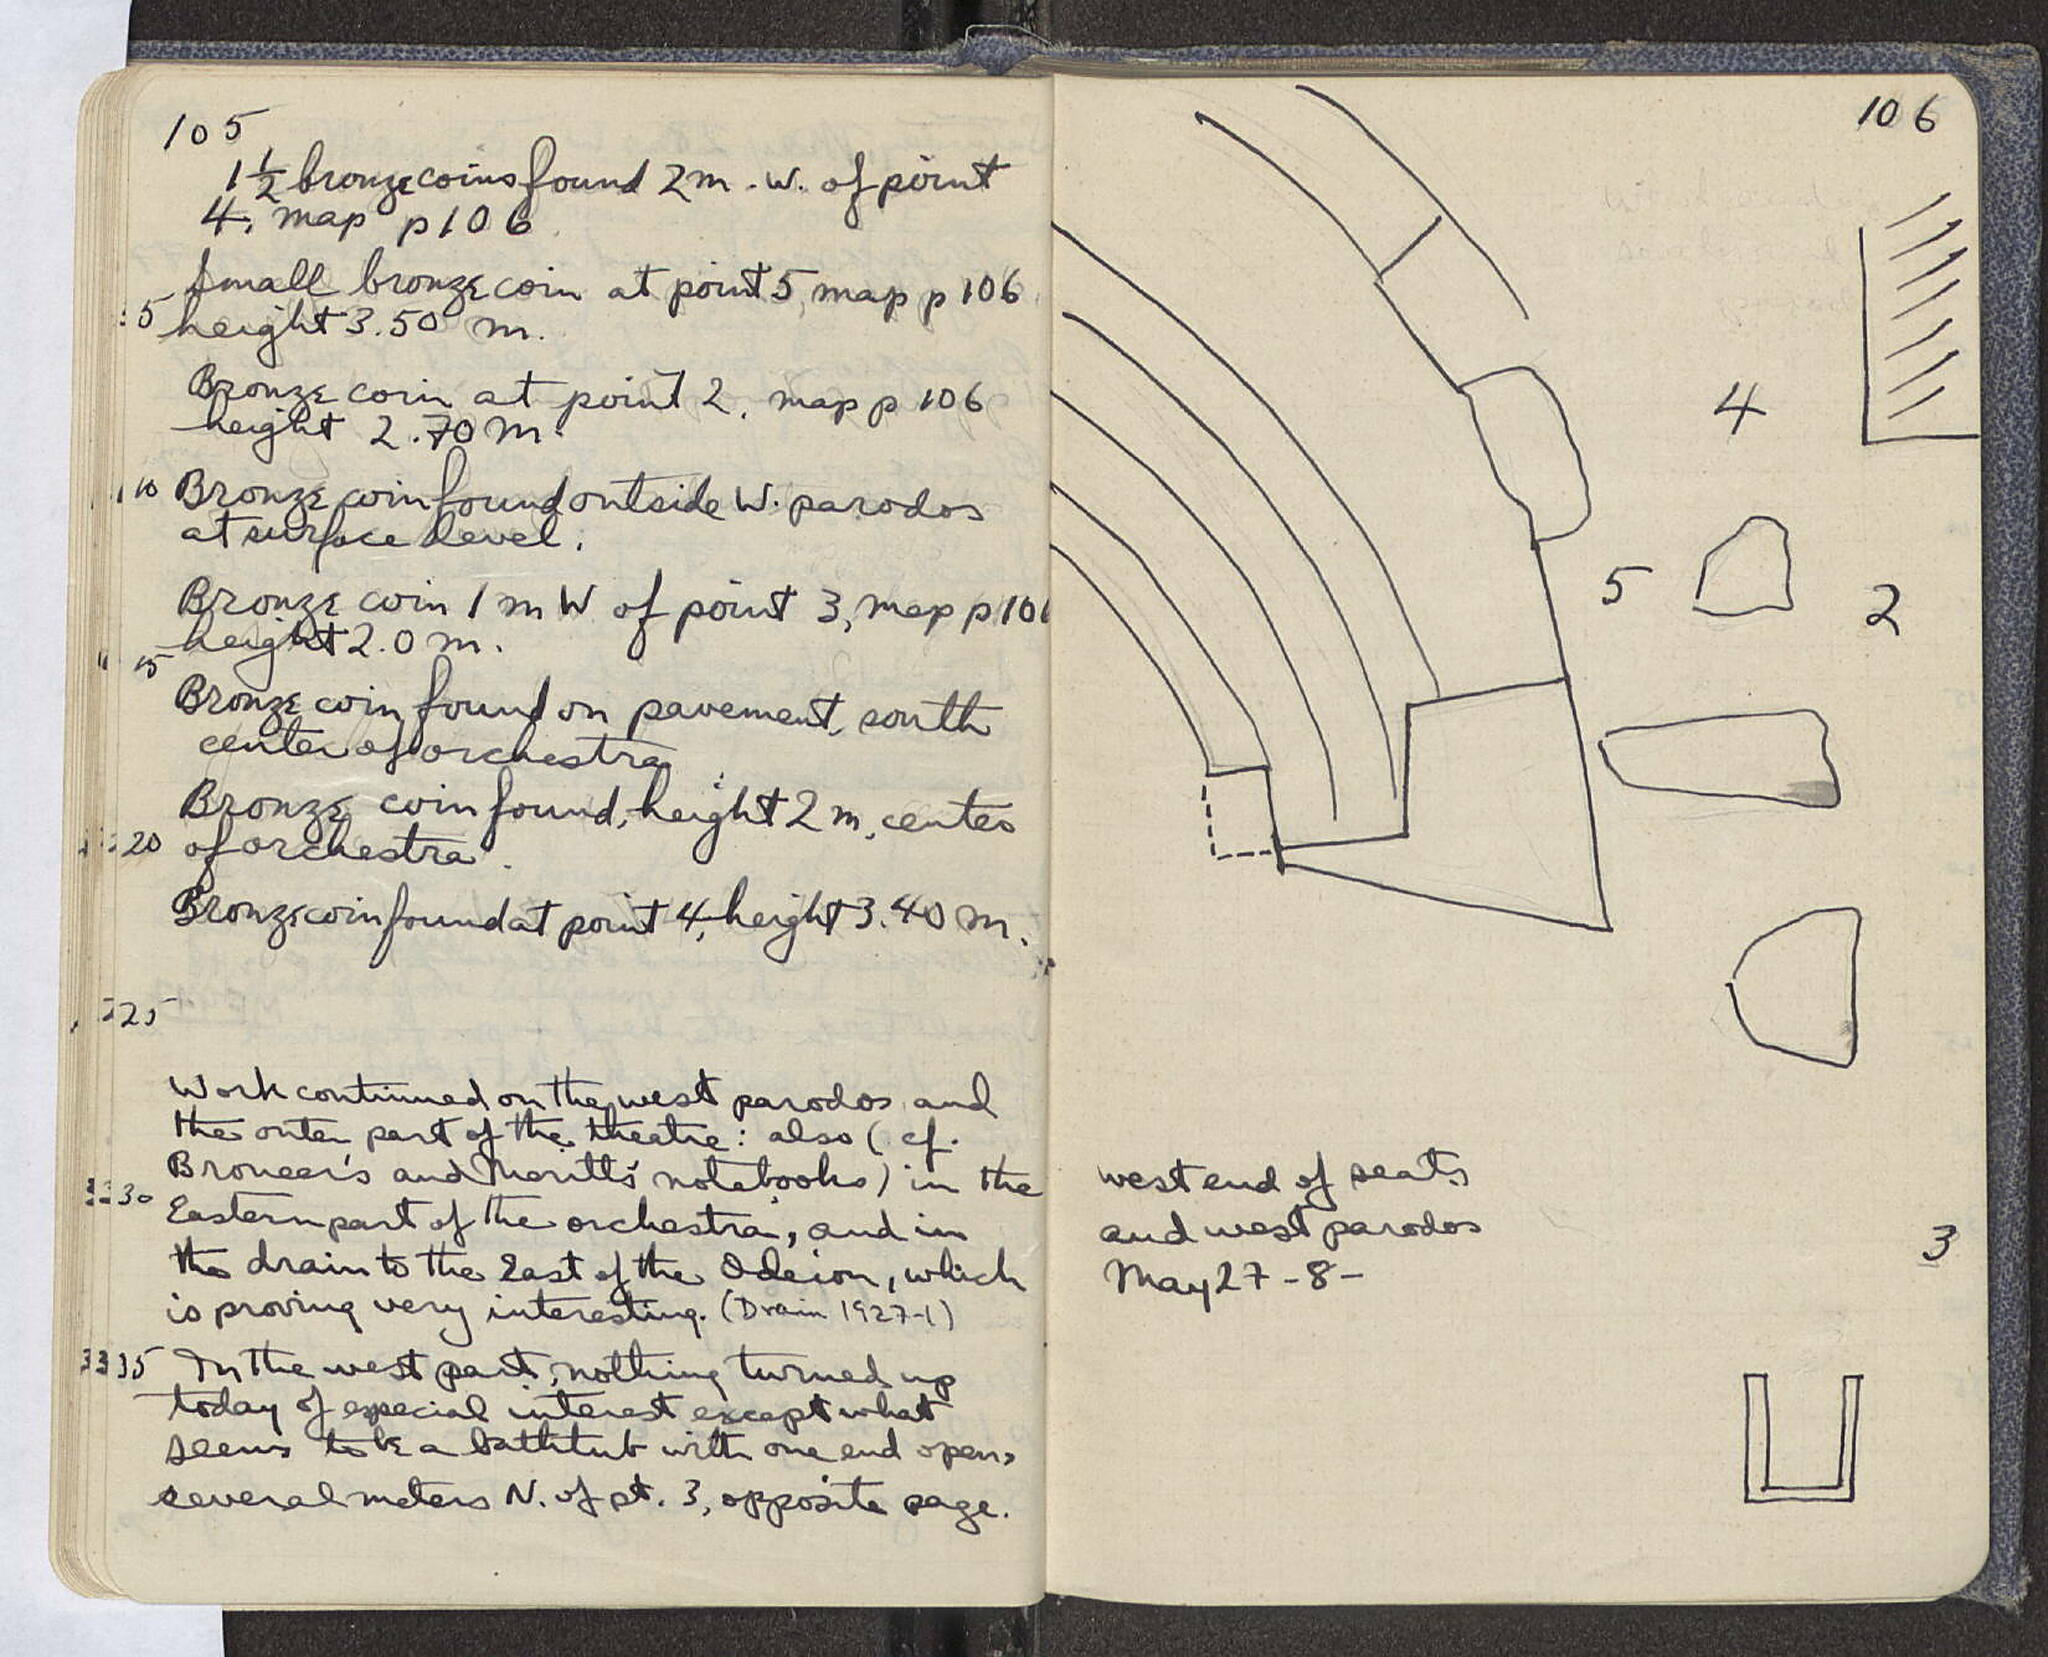 105
1½ bronze coins found 2 m. W. of point
4, map p 106
Small bronze coin at point 5, map p 106
5 height 3.50 m.
Bronze coin at point 2, map p 106
height 2.70 m.
10 Bronze coin found outside W. parodos
at surface level.
Bronze coin 1 m W of point 3, map p 106
height 2.0 m.
15
Bronze coin found on pavement, south
center of orchestra
Bronze coin found, height 2 m, center
20 of orchestra.
Bronze coin found at point 4, height 3.40 m.
25
Work continued on the west parodos and
the outer part of the theatre: also (cf.
Broneer's and Meritt's notebooks) in the
30 Eastern part of the orchestra, and in
the drain to the East of the Odeion, which
is proving very interesting. (Drain 1927-1)
35 In the west part, nothing turned up
today of especial interest except what
seems to be a bathtub with one end open,
several meters N. of pt. 3, opposite page.
106
4
5
2
west end of seats
and west parodos
3
May 27-8-